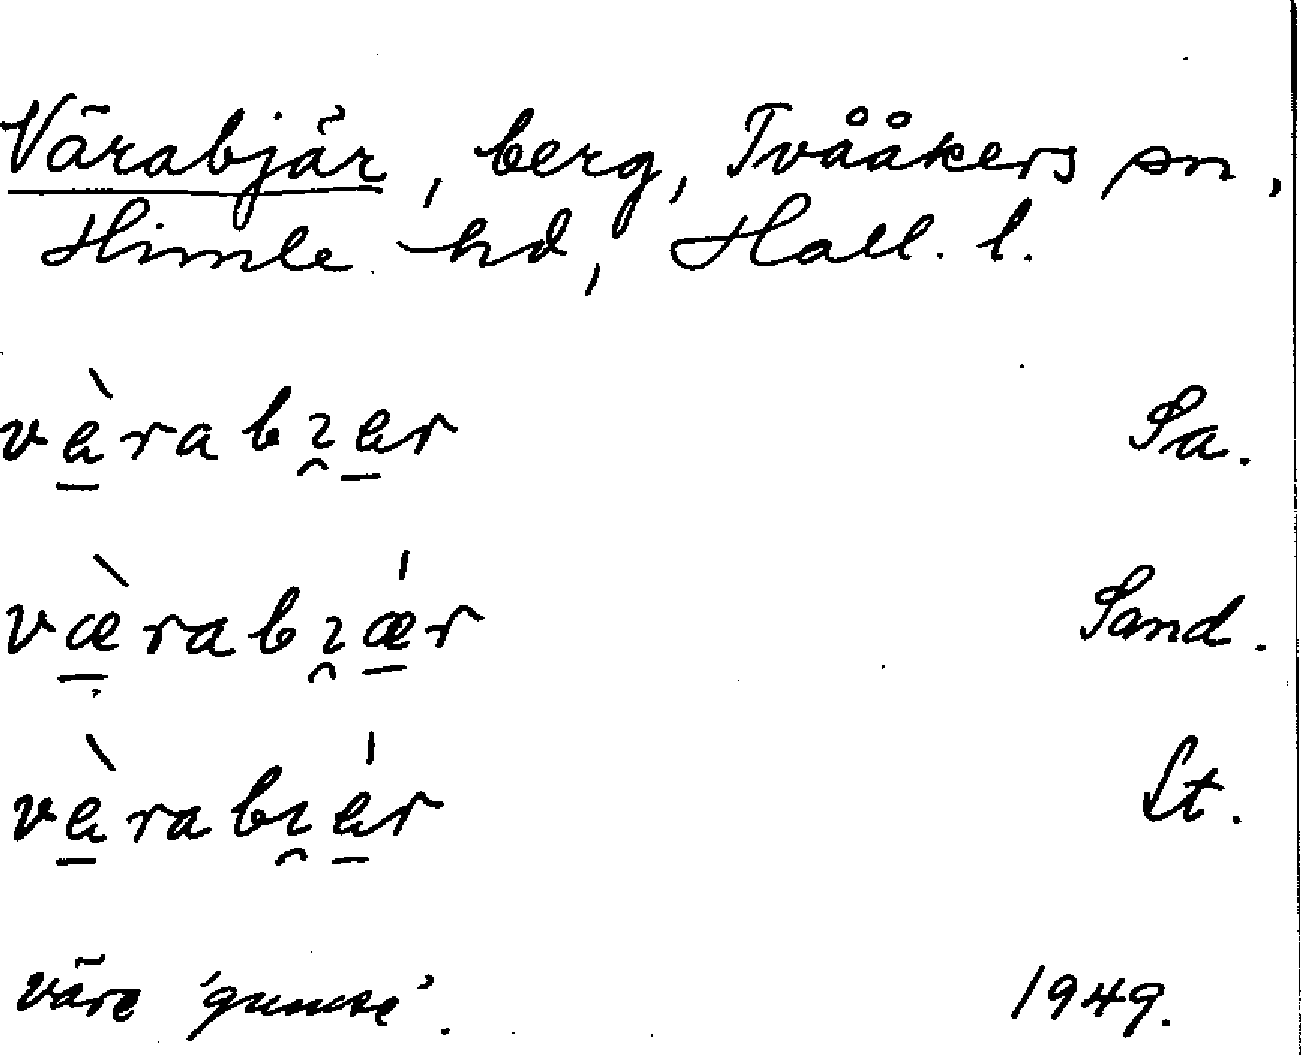 Värabjär, berg, Tvååkers sn,
Himle hd, Hall. l.
vèrabɿ̯er Sa.
væ̀rabɿ̯ǽr Sand.
vèrabɿ̯ér St.
väre 'gumse'. 1949.